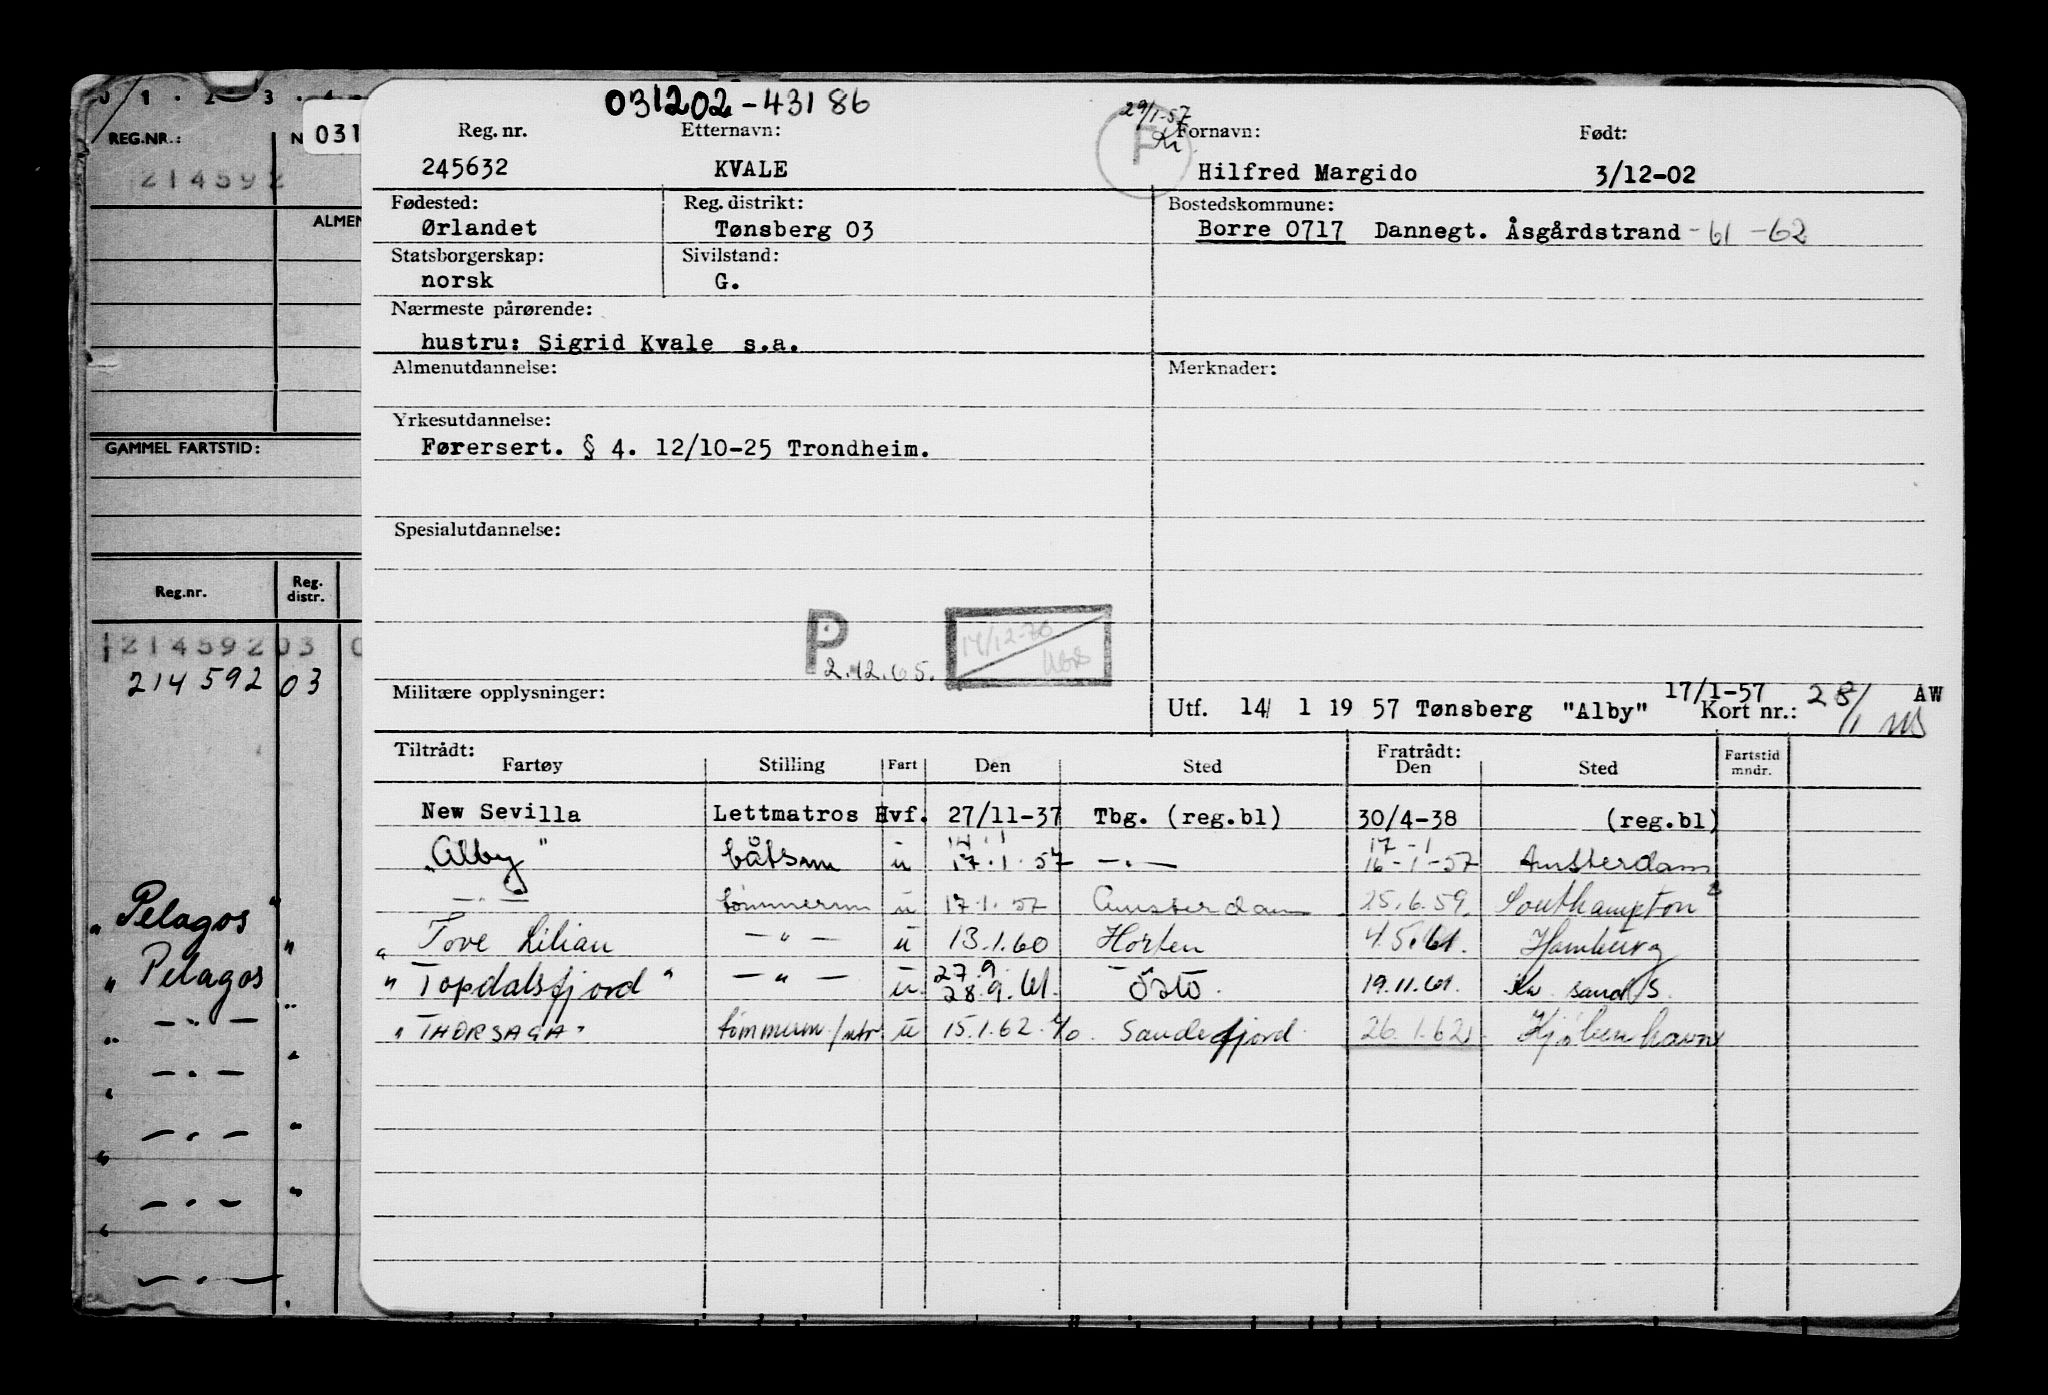 031202-43186
29/1-57
Reg. nr. Etternavn: Fornavn: Født:
245632 KVALE Hilfred Margido 3/12-02
Fødested: Reg. distrikt: Bostedskommune:
Ørlandet Tønsberg 03 Borre 0717 Dannegt. Åsgårdstrand -61 -62
Statsborgerskap: Sivilstand:
norsk G.
Nærmeste pårørende:
hustru: Sigrid Kvale s.a.
Almenutdannelse: Merknader:
Yrkesutdannelse:
Førersert. § 4. 12/10-25 Trondheim.
Spesialutdannelse:
P 2.12.65. 14/12-70
Militære opplysninger:
17/1-57 28/1 AW
Utf. 14/ 1 19 57 Tønsberg "Alby" Kort nr.:
Tiltrådt: Fratrådt:
Fartøy Stilling Fart Den Sted Den Sted Fartstid mndr.
New Sevilla Lettmatros Hvf. 27/11-37 Tbg. (reg.bl) 30/4-38 (reg.bl)
14.1 17-1
"Alby" båtsm u 17.1.57 — " — 16-1-57 Amsterdam
— " — tømmerm u 17.1.57 Amsterdam 25.6.59. Southampton
" Tove Lilian — " — u 13.1.60 Horten 4.5.61. Hamburg
27.9.
" Topdalsfjord " — " — u. 28.9.61. Oslo. 19.11.61. Kr. sand S.
" THORSAGA " tømmerm/mtr u 15.1.62 Sandefjord. 26.1.62 Kjøbenhavn
0 1 . 2 . 3 . 4
REG.NR.: N 031
214592
ALMEN
GAMMEL FARTSTID:
Reg.nr. Reg. distr.
214592 03 0
214592 03
"Pelagos"
" Pelagos "
" — " — "
" — " — "
" — " — "
" — " — "
" — " —